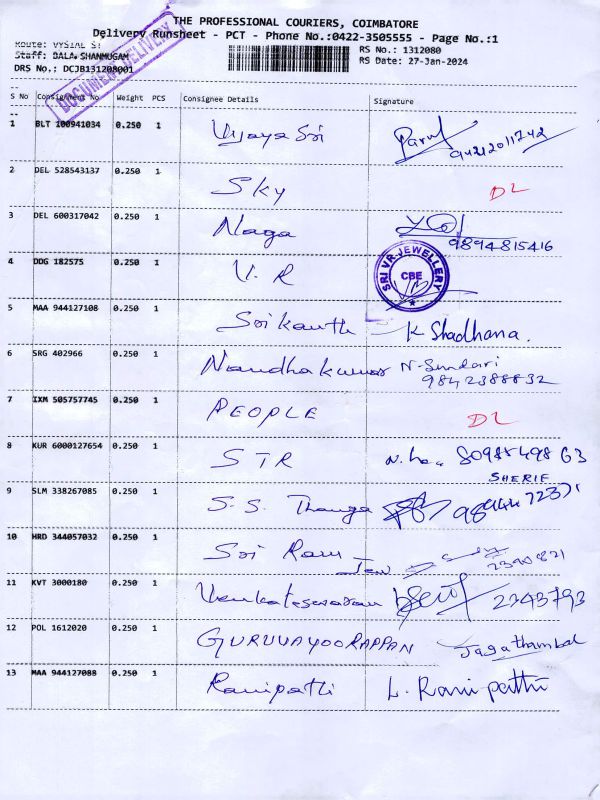 THE PROFESSIONAL COURIERS, COIMBATORE
Delivery Runsheet - PCT - Phone No.:0422-3505555 - Page No.:1
Route: VYSIAL ST
Staff: BALA SHANMUGAM
DRS No.: DCJB131208001
RS No.: 1312080
RS Date: 27-Jan-2024
DOCUMENT DELIVERY
S No Consignment No Weight PCS Consignee Details Signature
1 BLT 100941034 0.250 1 Vijaya Sri 9421201742
2 DEL 528543137 0.250 1 Sky DL
3 DEL 600317042 0.250 1 Naga 9894815416
4 DDG 182575 0.250 1 V. R SRI VR JEWELLERY CBE
5 MAA 944127108 0.250 1 Srikanth K Shadhana.
6 SRG 402966 0.250 1 Nandhakumar N. Sundari
9842388832
7 IXM 505757745 0.250 1 PEOPLE DL
8 KUR 6000127654 0.250 1 STR 8098549863
SHERIF
9 SLM 338267085 0.250 1 S. S. Thanga
10 HRD 344057032 0.250 1 Sri Ram Jew 2390821
11 KVT 3000180 0.250 1 Venkateswaran 2343793
12 POL 1612020 0.250 1 GURUVAYOORAPPAN Jagathambal
13 MAA 944127088 0.250 1 Ranipathi L. Ranipathi